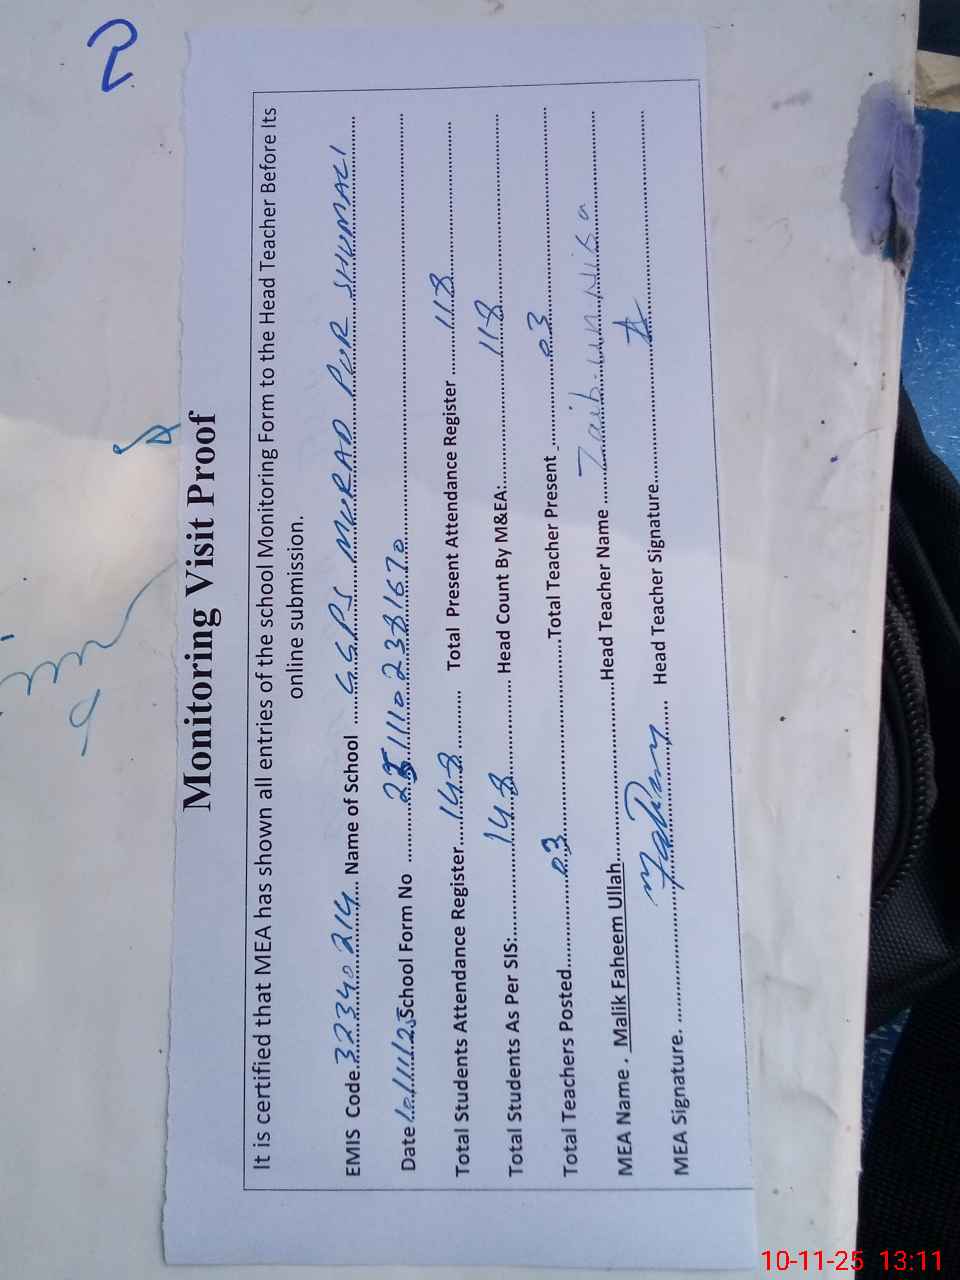 2
Monitoring Visit Proof
It is certified that MEA has shown all entries of the school Monitoring Form to the Head Teacher Before Its
online submission.
EMIS Code..32340214... Name of School .....GGPS MURAD PUR SHUMALI....
Date 10/11/25 School Form No ............2511102381670............
Total Students Attendance Register....148.......... Total Present Attendance Register ..........118..........
Total Students As Per SIS:............148............ Head Count By M&EA:............118............
Total Teachers Posted............03............Total Teacher Present ............03............
MEA Name . Malik Faheem Ullah............Head Teacher Name ......Zaib-un-Nisa............
MEA Signature. ............ Head Teacher Signature............
10-11-25 13:11